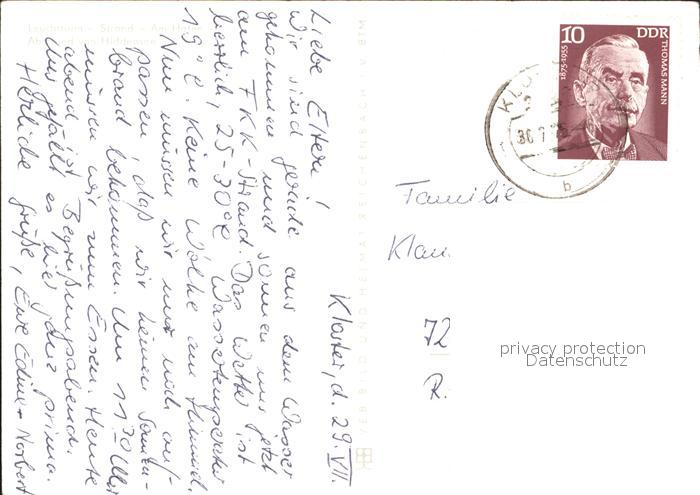 Leuchtturm - Strand - Am Hafen
Kloster, d. 29. VII.
Liebe Eltern!
Wir sind gerade aus dem Wasser
gekommen und sonnen uns jetzt
am FKK-Strand. Das Wetter ist
herrlich, 25-30°C Wassertemperatur
19°C. Keine Wolke am Himmel.
Nun müssen wir nur noch auf-
passen, daß wir keinen Sonnen-
brand bekommen. Um 11.30 Uhr
müssen wir zum Essen. Heute
abend ist Begrüßungsabend.
Uns gefällt es hier ganz prima.
Herzliche Grüße, Eure Edine + Norbert
VEB BILD UND HEIMAT REICHENBACH
10 DDR
THOMAS MANN
1875-1955
b
Familie
Klau.
72
R.
privacy protection
Datenschutz